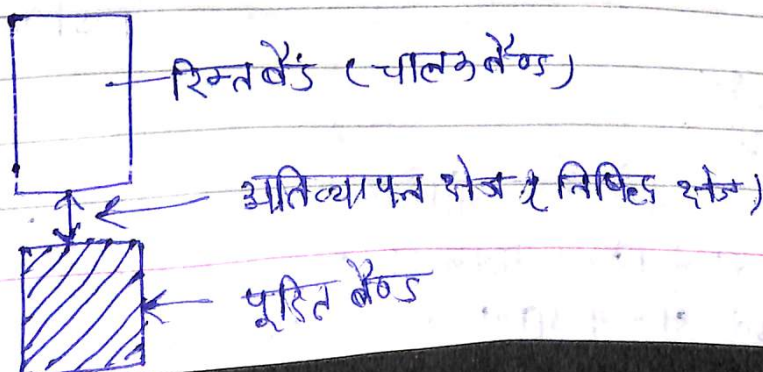 रिक्त बैंड (चालक बैण्ड)
अतिव्यापन क्षेत्र ( निषिद्ध क्षेत्र)
पूरित बैण्ड